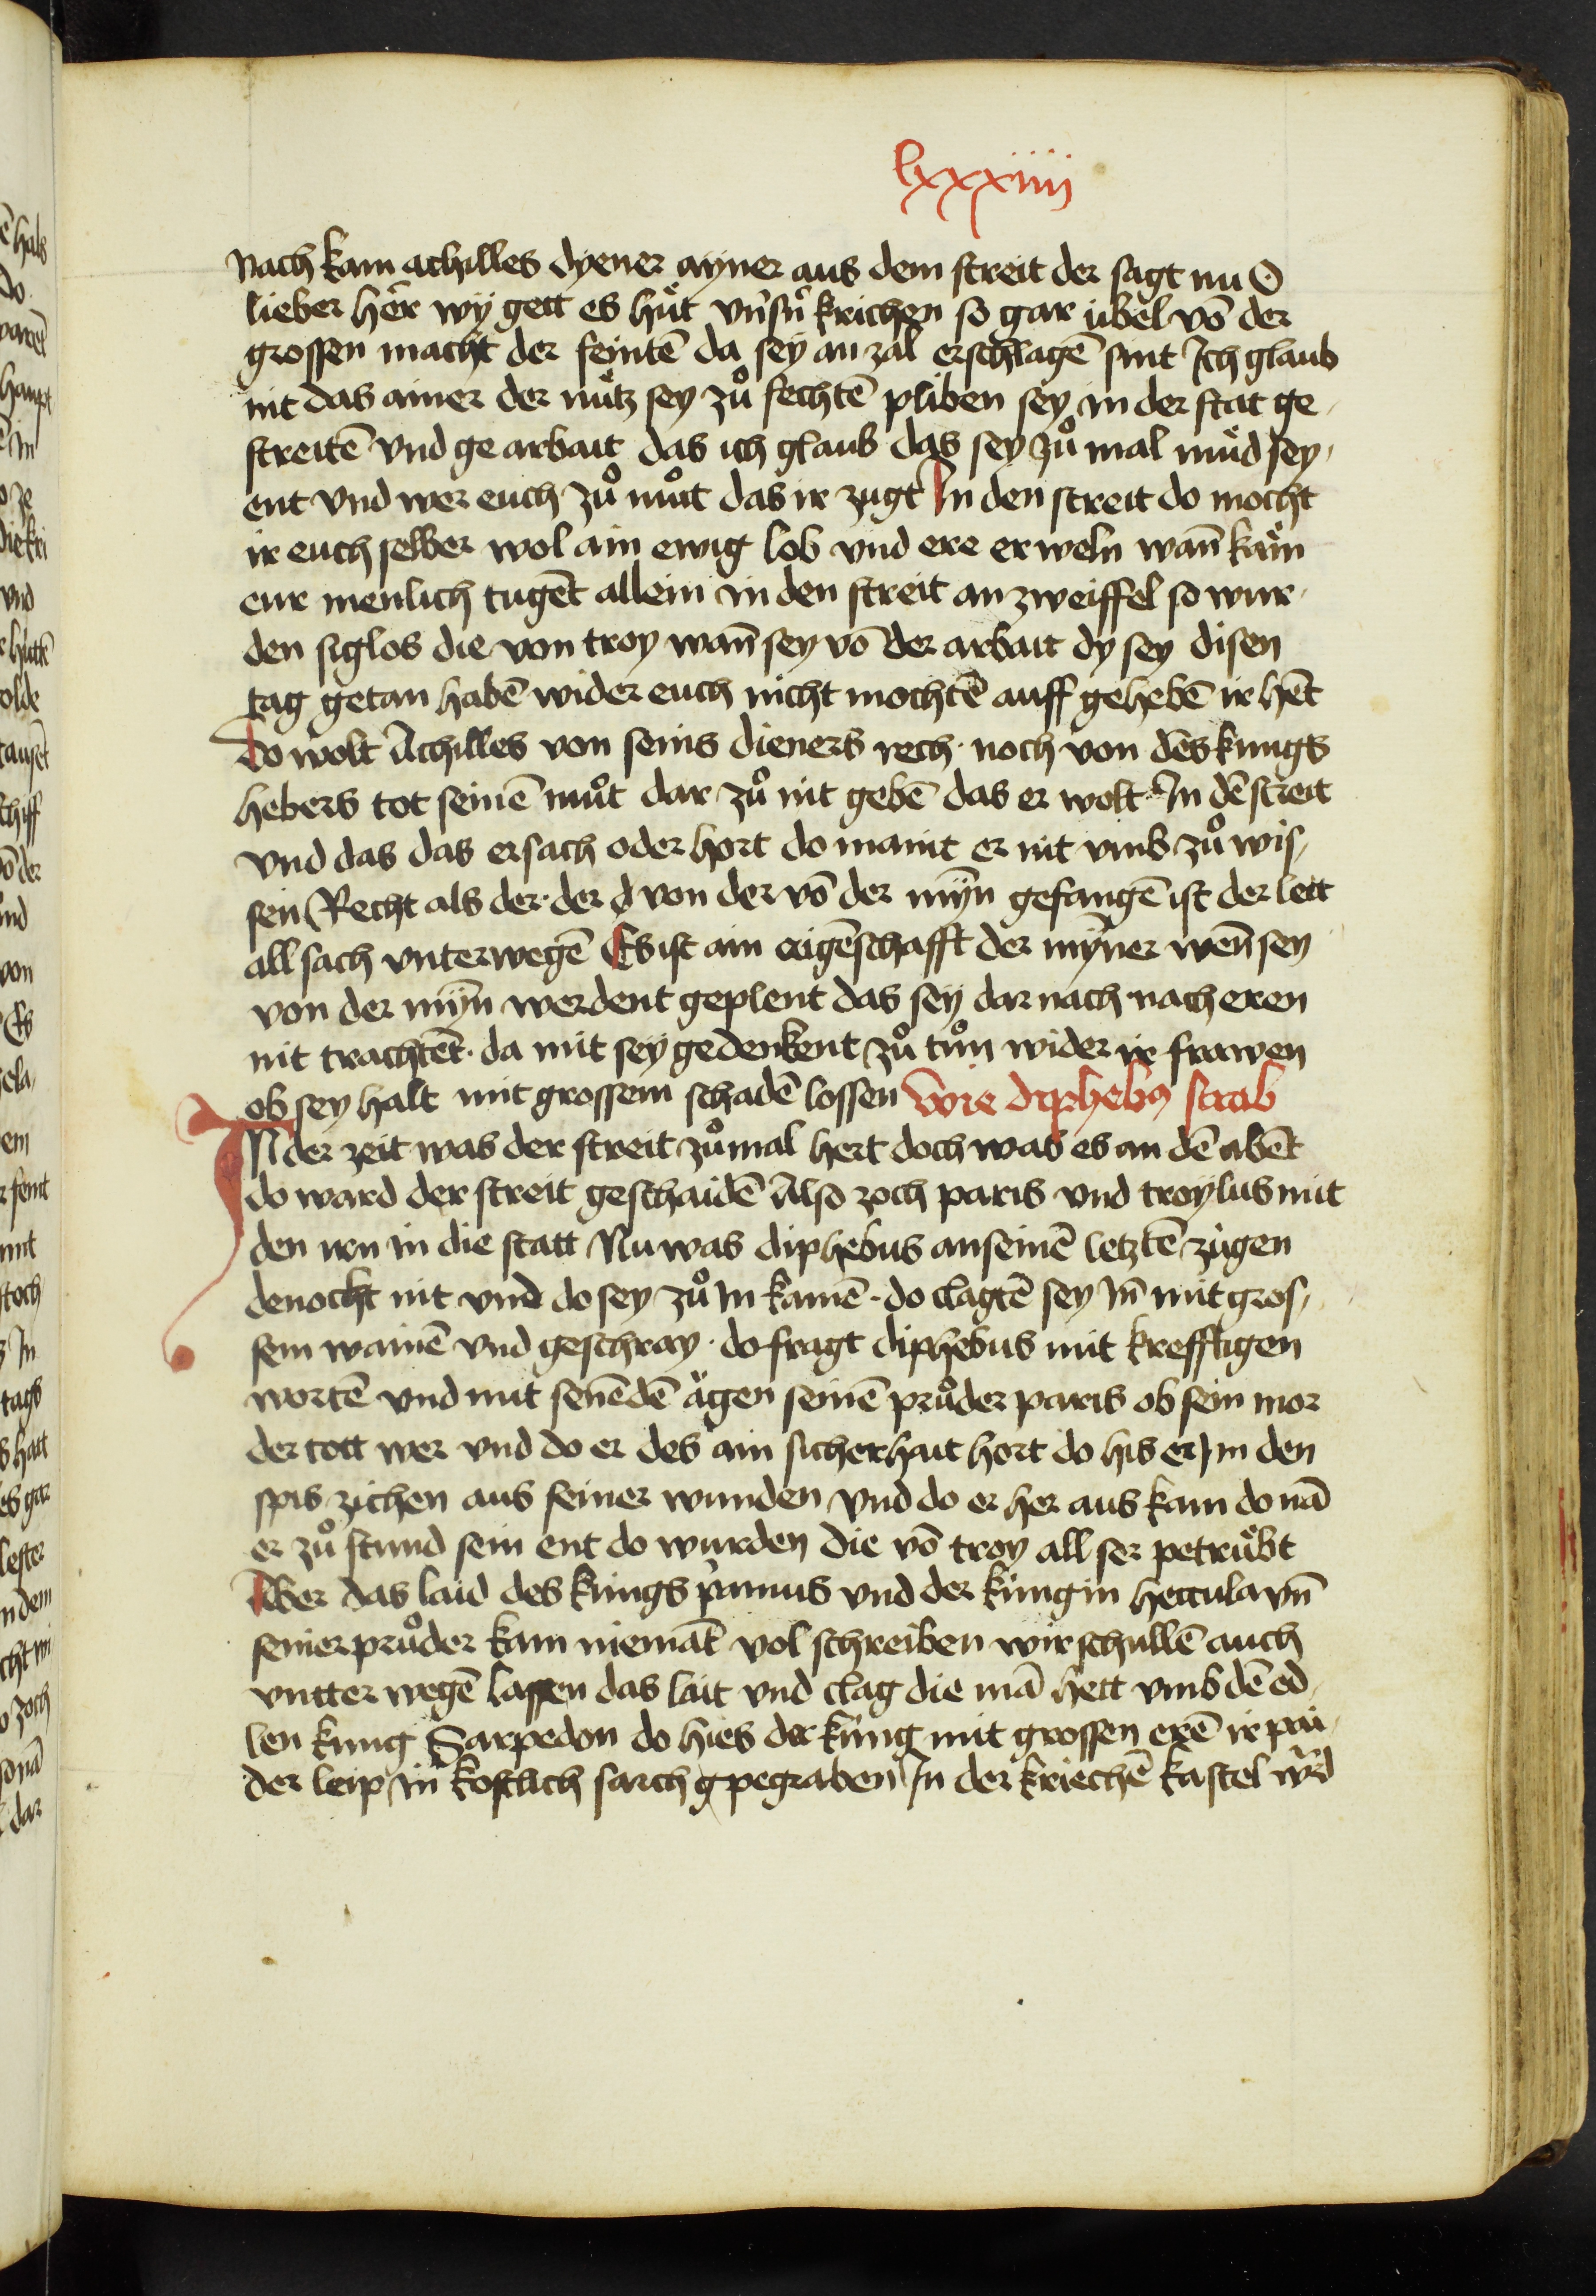 lxxxiiii
nach kam achilles dyener ayner aus dem streit der sagt nu O
lieber her wy gett es hüt vnsn̄ krichen so gar übel vō der
grossen macht der feintē da sey an zal erschlagē sint Ich glaub
nit das ainer der nütz sey zů fechtē pliben sey in der stat ge
streitē vnd ge arbait das ich glaub das sey zů mal müd sey
ent vnd wer euch zů můt das ir zugt In den streit do mocht
ir euch selber wol ain ewig lob vnd ere erweln wan̄ käm
eur menlich tugēt allein in den streit an zweiffel so wur
den siglos die von troy wan̄ sey vō der arbait dy sey disen
tag getan habē wider euch nicht mochtē auff gehebē ir hēt
Do wolt Achilles von seins dieners rech noch von des kungs
hebers tot seinē můt dar zů nit gebē das er wolt In dē streit
vnd das das er sach oder hort do maint er nit vmb zů wis
sen Recht als der der d von der vō der myn̄ gefangē ist der lett
all sach vnterwegē Es ist ain aigēschafft der myn̄er wen̄ sey
von der myn̄ werdent geplent das sey dar nach nach eren
nit trachtēt da mit sey gedenkent zů tůn wider ir frawen
ob sey halt mit grossem schadē lossen Wie diphebus starb
IN der zeit was der streit zůmal hert doch was es an dē abēt
do ward der streit geschaidē Also zoch paris vnd troylus mit
den irn in die statt Nu was diphebus an seinē letztē zügen
denocht nit vnd do sey zů In kamē do clagtē sey In̄ mit gros
sem wainē vnd geschray do fragt diphebus mit krefftigen
wortē vnd mit senēdē ägen seinē průder paris ob sein mor
der tott wer vnd do er des ain sicherhait hort do his er Im den
spis zichen aus seiner wunden vnd do er her aus kam do nā
er zů stund sein ent do wurden die vō troy all ser petrübt
Aber das laid des kungs pamus vnd der küngin hettula vn̄
seiner průder kam niemāt vol schreiben wir schullē auch
vntter wegē lassen das lait vnd clag die mā hett vmb dē ed
len kung Sarpedon do hies der küng mit grossen erē ir prü
der leip in̄ kostlich sarch g pegraben In der kriechē kastel wrd